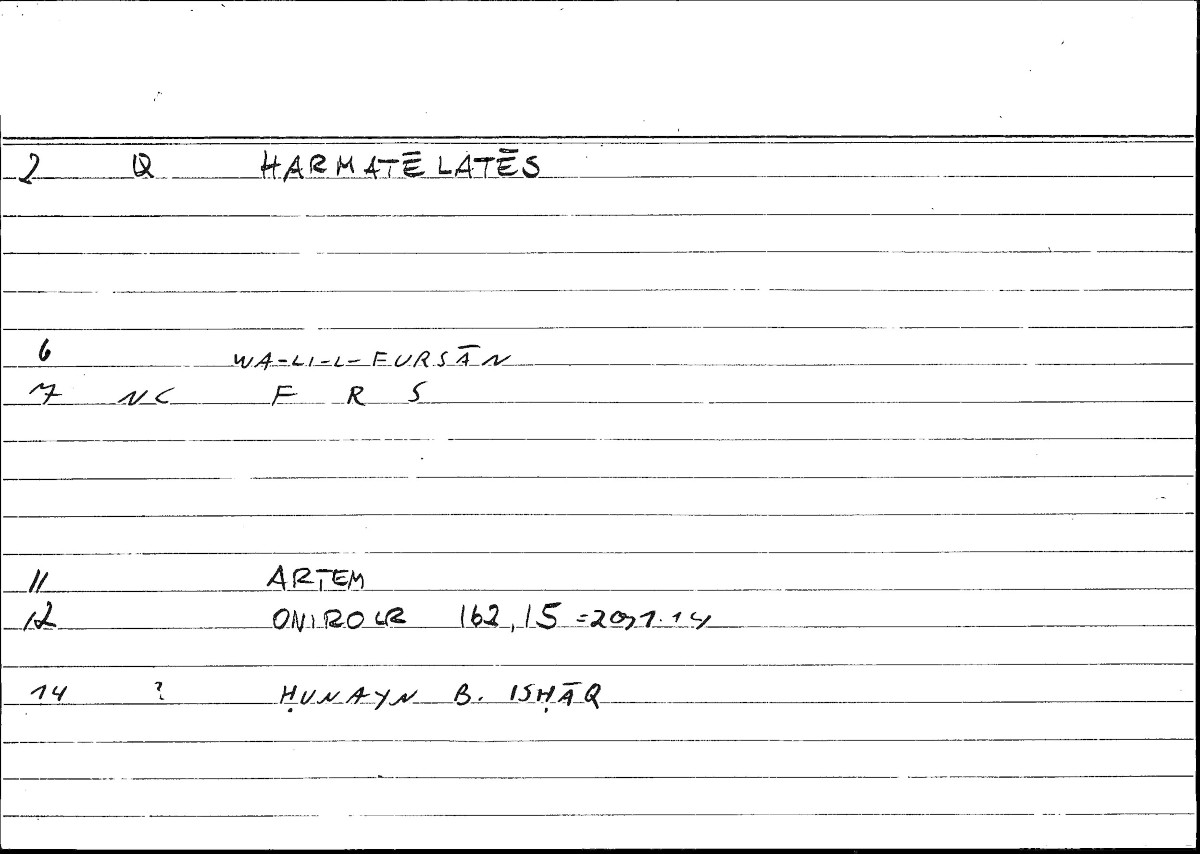 2 Q HARMATĒLATĒS
6 WA-LI-L-FURSĀN
7 NC F R S
11 ARTEM
12 ONIROCR 162,15
14 ? ḤUNAYN B. ISḤĀQ